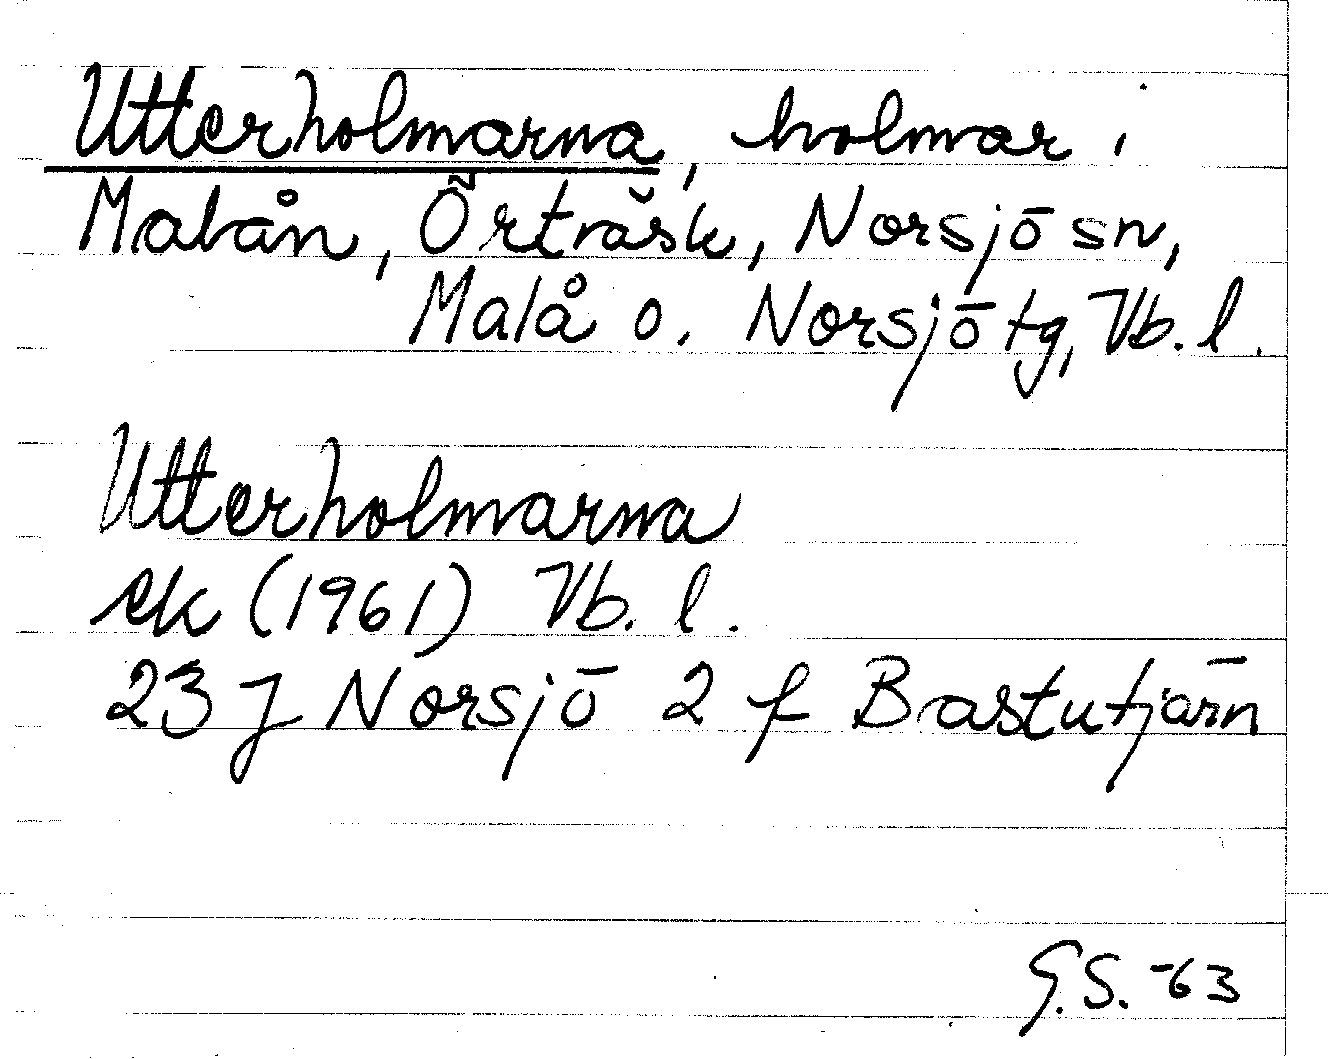 Utterholmarna, holmar i
Malån, Örträsk, Norsjö sn,
Malå o. Norsjö tg, Vb. l.
Utterholmarna
ek (1961) Vb. l.
23 J Norsjö 2 f Bastutjärn
G.S. -63